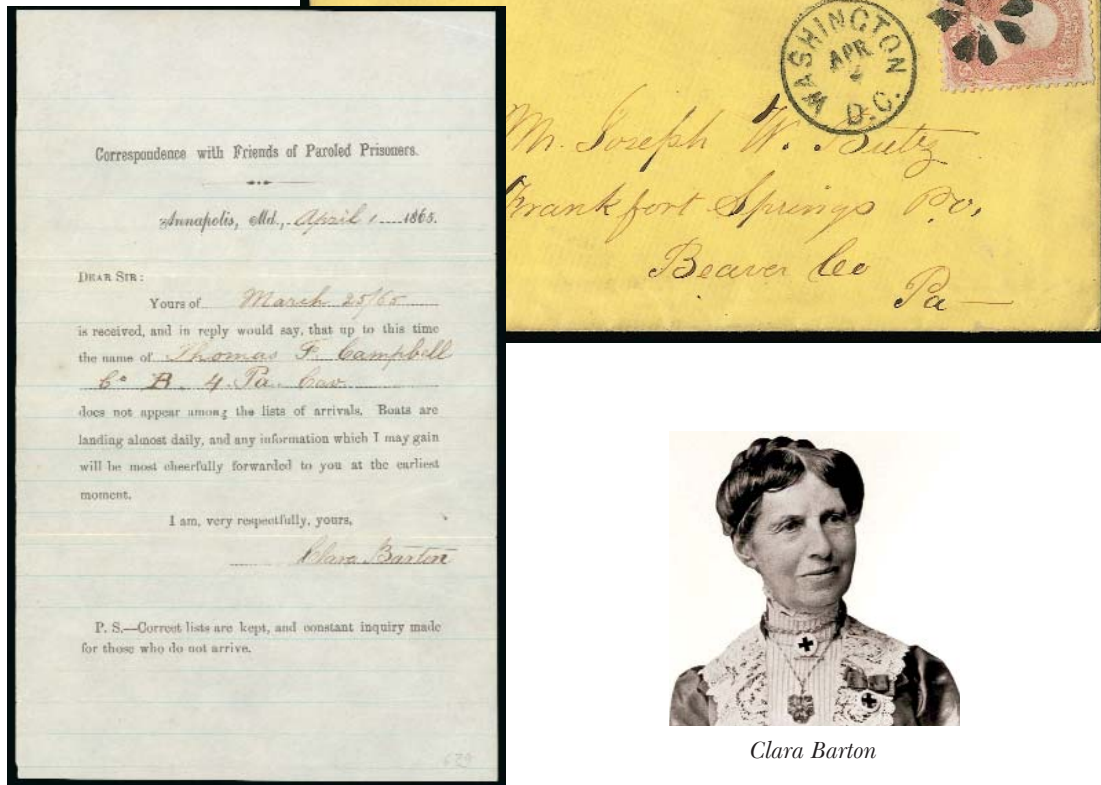 Correspondence with Friends of Paroled Prisoners.
Annapolis, Md., April 1 1865.
DEAR SIR:
Yours of March 25/65
is received, and in reply would say, that up to this time
the name of Thomas F. Campbell
Co B. 4. Pa. Cav.
does not appear among the lists of arrivals. Boats are
landing almost daily, and any information which I may gain
will be most cheerfully forwarded to you at the earliest
moment.
I am, very respectfully, yours,
Clara Barton
P. S.—Correct lists are kept, and constant inquiry made
for those who do not arrive.
629
WASHINGTON
APR
D.C.
Mr. Joseph W. Butz
Frankfort Springs P.O.
Beaver Co
Pa
Clara Barton